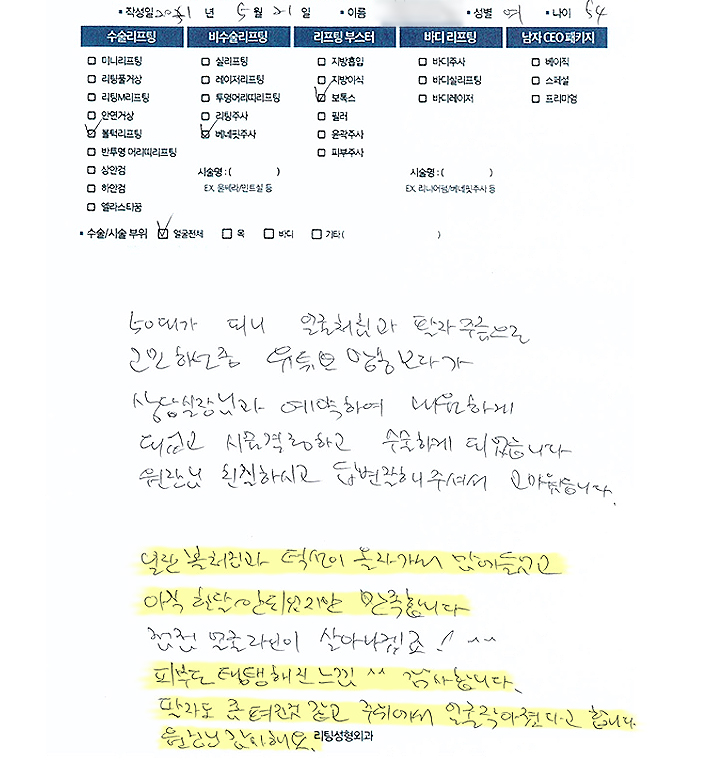 작성일 20 1 년 5 월 21 일 이름 성별 여 나이 54
수술리프팅 비수술리프팅 리프팅 부스터 바디 리프팅 남자 CEO 패키지
미니리프팅 실리프팅 지방흡입 바디주사 베이직
리팅풀거상 레이저리프팅 지방이식 바디실리프팅 스페셜
리팅M리프팅 투명어리띠리프팅 보톡스 바디레이저 프리미엄
안면거상 리팅주사 필러
볼턱리프팅 베네핏주사 윤곽주사
반투명 어리띠리프팅 피부주사
상안검 시술명 : ( ) 시술명 : ( )
하안검 EX. 울쎄라/민트실 등 EX. 리니어펌/베네핏주사 등
엘라스티꿈
수술/시술 부위 얼굴전체 목 바디 기타 ( )
50대가 되니 얼굴처짐과 팔자주름으로
고민하던중 유튜브 보다가
상담실장님과 예약하여 내원하게
되었고 수술하게 되었습니다
원장님 친절하시고 답변잘해주셔서 고마웠습니다.
일단 볼처짐과 턱선이 올라가서 맘에들었고
아직 한달 안되었지만 만족합니다
점점 얼굴라인이 살아나겠죠! ^^
피부도 탱탱해진느낌 ^^ 감사합니다.
팔자도 좀 펴진것 같고 주위에서 얼굴작아졌다고 합니다
원장님 감사해요.
리팅성형외과